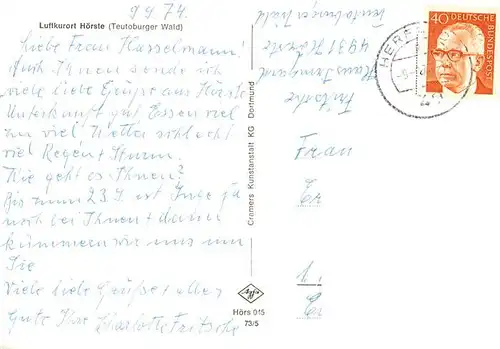 9.9.74.
Luftkurort Hörste (Teutoburger Wald)
Liebe Frau Hasselmann!
Auch Ihnen sende ich
viele liebe Grüße aus Hörste
Unterkunft gut Essen viel
zu viel Wetter schlecht
viel Regen + Sturm.
Wie geht es Ihnen?
Bis zum 23.9. ist Inge ja
noch bei Ihnen + dann
kümmern wir uns um
Sie
Viele liebe Grüße + alles
Gute Ihre Charlotte Fritsche
Cramers Kunstanstalt KG Dortmund
Hörs 015
73/5
Fritsche
4931 Hörste
Teutoburger Wald
Frau
HERF
40 DEUTSCHE BUNDESPOST